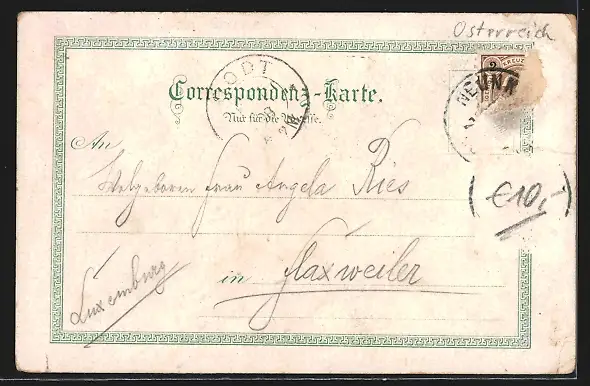 Österreich
2 KREUZ
NEUNK
ODT
Correspondenz-Karte.
Nur für die Adresse.
An
Wolgeboren Frau Angela Ries
in Flaxweiler
Luxemburg
€10,-